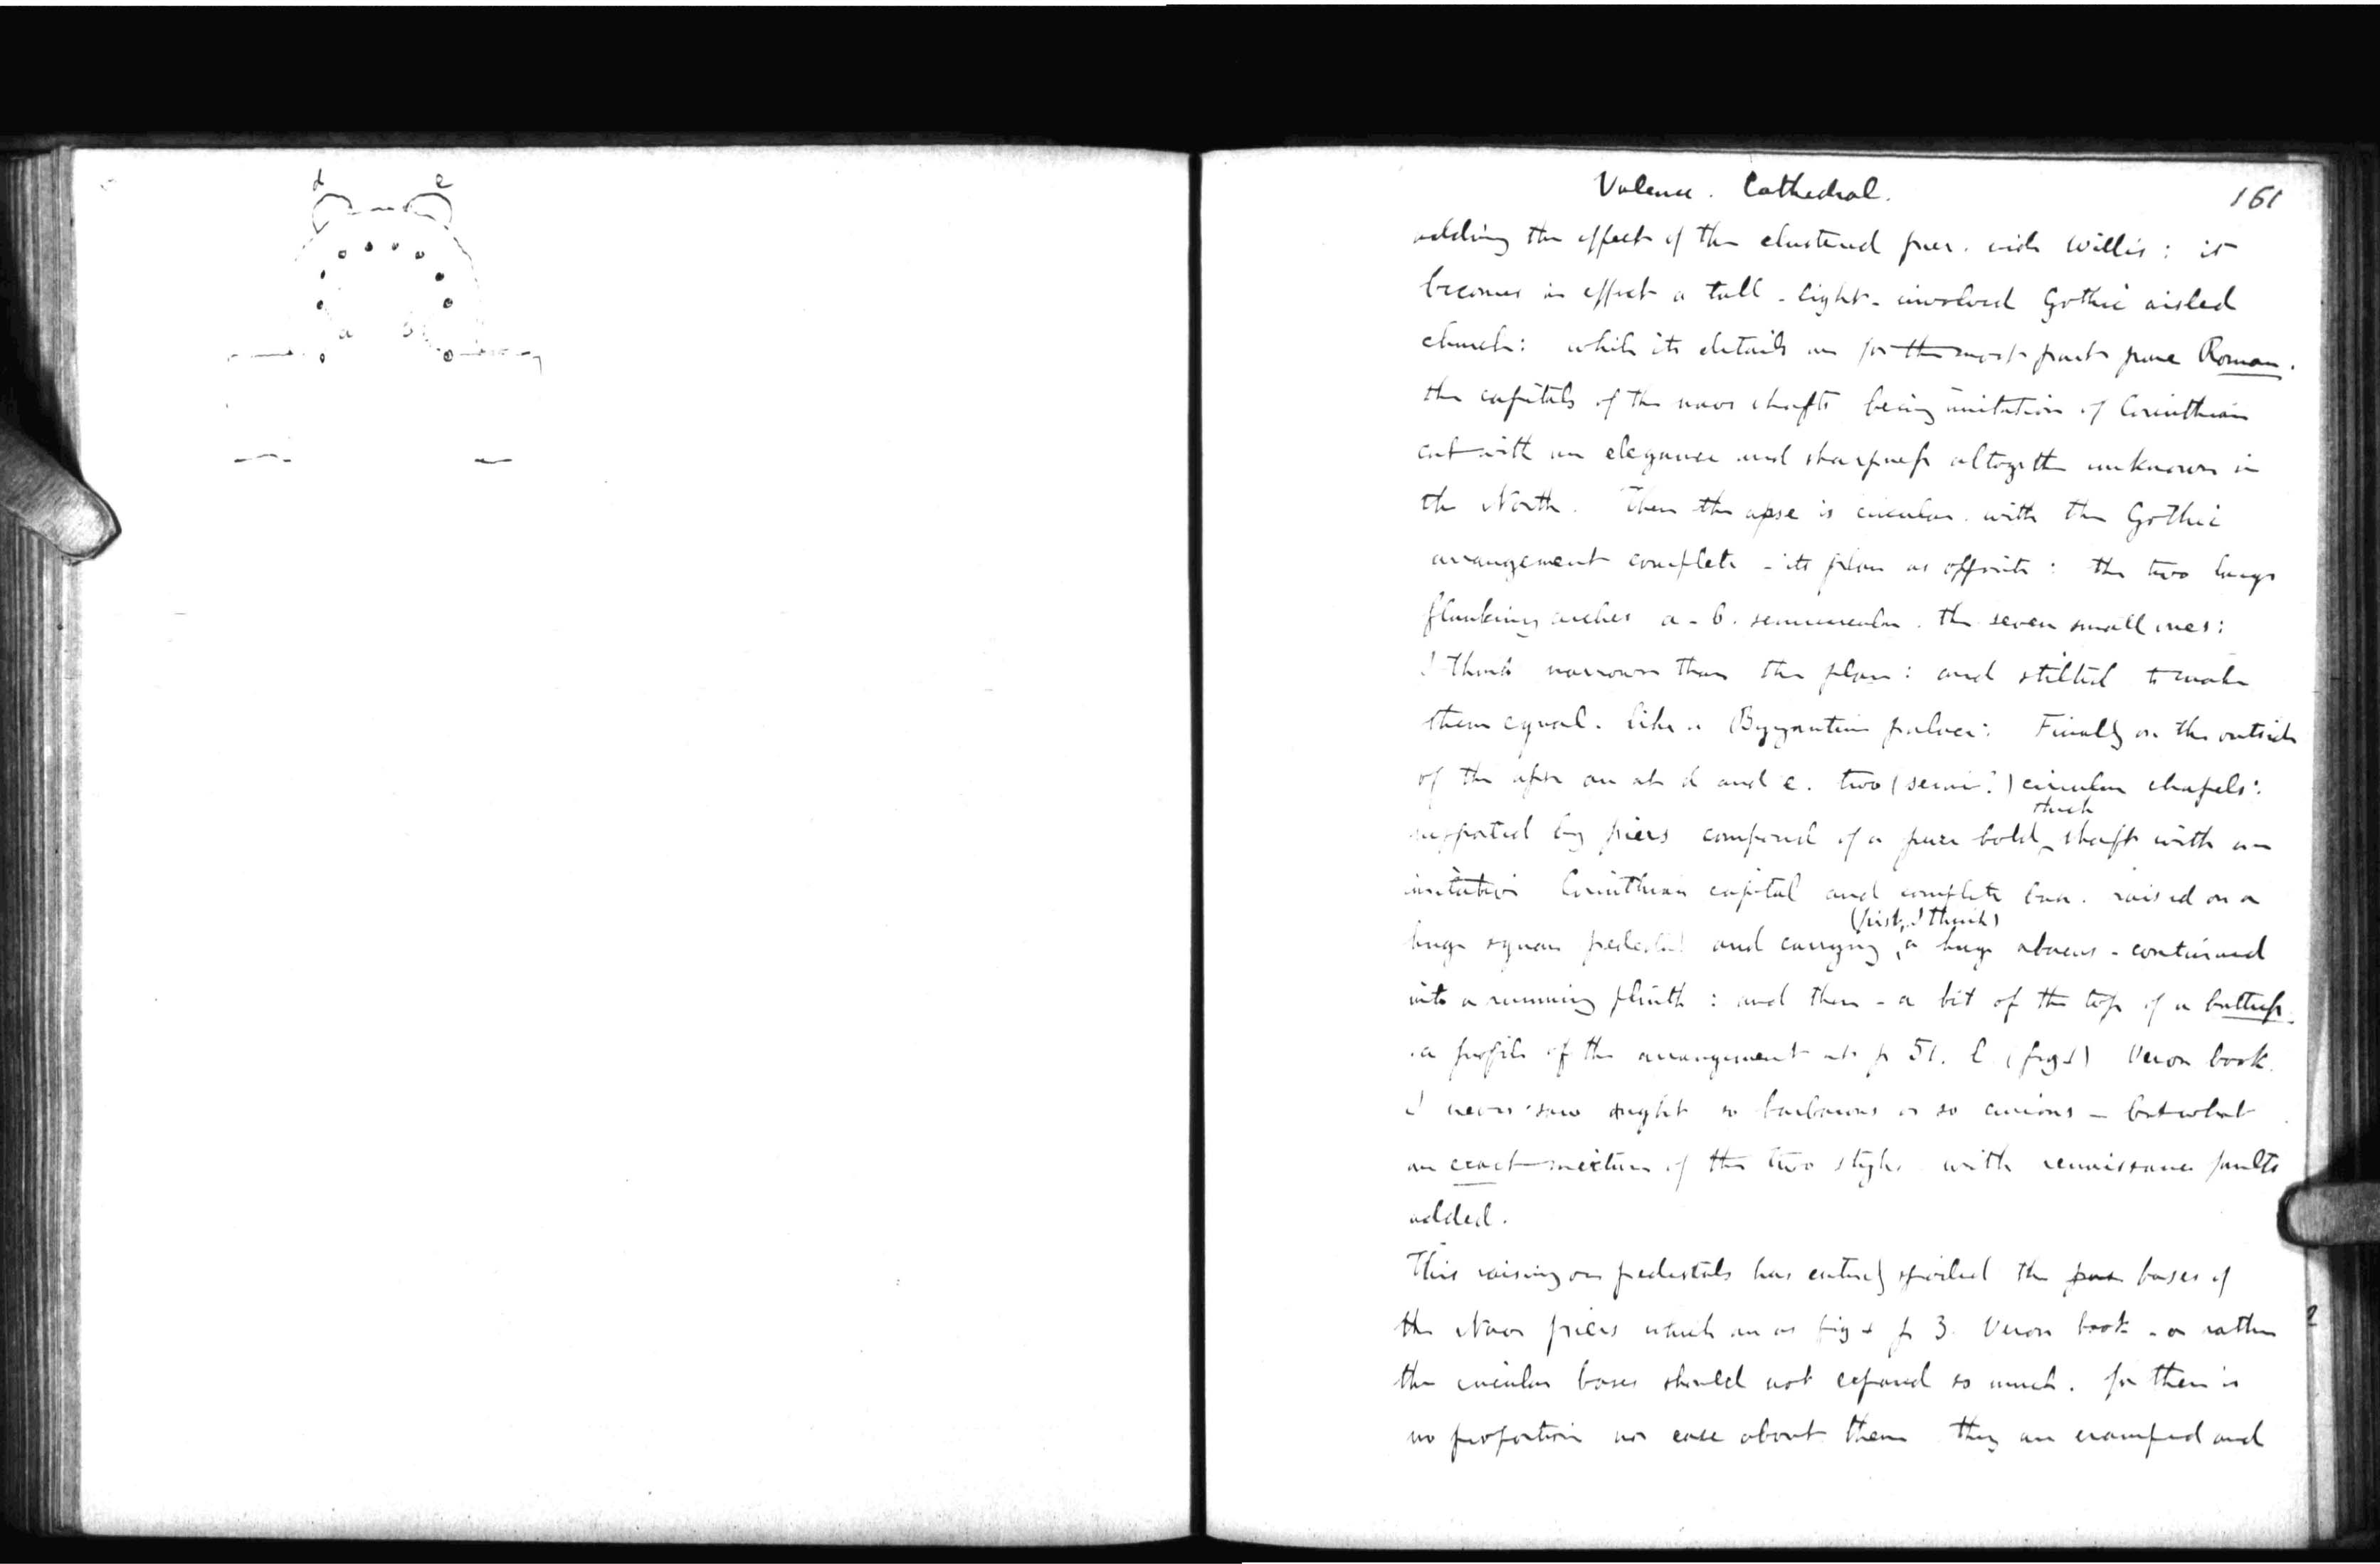 d e
a b
Valence. Cathedral. 161
adding the effect of the clustered pier. vide Willis: it
becomes in effect a tall - light - involved Gothic aisled
church: while its details are for the most part pure Roman.
the capitals of the nave shafts being imitation of Corinthian
cut with an elegance and sharpness altogether unknown in
the North. Then the apse is circular. with the Gothic
arrangement complete - its plan as opposite: the two large
flanking arches a - b. semicircular. the seven small ones:
I think narrower than the plan: and stilted to make
them equal. like a Byzantine palace: Finally on the outside
of the apse are at d and e. two (semi?) circular chapels:
supported by piers composed of a pure bold thick shaft with an
imitation Corinthian capital and complete base. raised on a
huge square pedestal and carrying (first, I think) a huge abacus - continued
into a running plinth: and then - a bit of the top of a buttress.
a profile of the arrangement at p 51. l (fig 1) Veron book.
I never saw aught so barbarous or so curious - but what
an exact mixture of the two styles with renaissance faults
added.
This raising on pedestals has entirely spoiled the bases of
the Nave piers which are as fig p 3. Veron book - or rather 2
the circular bases should not expand so much. for there is
no proportion nor ease about them they are cramped and